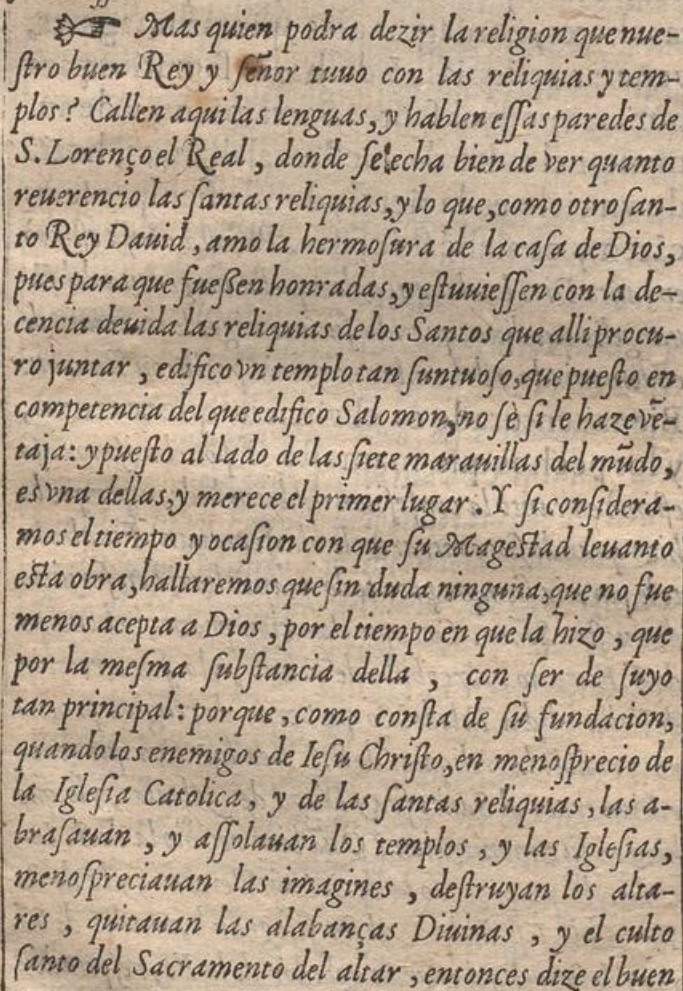 ☞ Mas quien podra dezir la religion que nue-
ſtro buen Rey y ſeñor tuuo con las reliquias y tem-
plos? Callen aqui las lenguas, y hablen eſſas paredes de
S. Lorenço el Real, donde ſe echa bien de ver quanto
reuerencio las ſantas reliquias, y lo que, como otro ſan-
to Rey Dauid, amo la hermoſura de la caſa de Dios,
pues para que fueßen honradas, y eſtuuieſſen con la de-
cencia deuida las reliquias de los Santos que alli procu-
ro juntar, edifico vn templo tan ſuntuoſo, que pueſto en
competencia del que edifico Salomon, no ſè ſi le haze vē-
taja: y pueſto al lado de las ſiete marauillas del mūdo,
es vna dellas, y merece el primer lugar. Y ſi conſidera-
mos el tiempo y ocaſion con que ſu Mageſtad leuanto
eſta obra, hallaremos que ſin duda ninguna, que no fue
menos acepta a Dios, por el tiempo en que la hizo, que
por la meſma ſubſtancia della, con ſer de ſuyo
tan principal: porque, como conſta de ſu fundacion,
quando los enemigos de Ieſu Chriſto, en menoſprecio de
la Igleſia Catolica, y de las ſantas reliquias, las a-
braſauan, y aſſolauan los templos, y las Igleſias,
menoſpreciauan las imagines, deſtruyan los alta-
res, quitauan las alabanças Diuinas, y el culto
ſanto del Sacramento del altar, entonces dize el buen